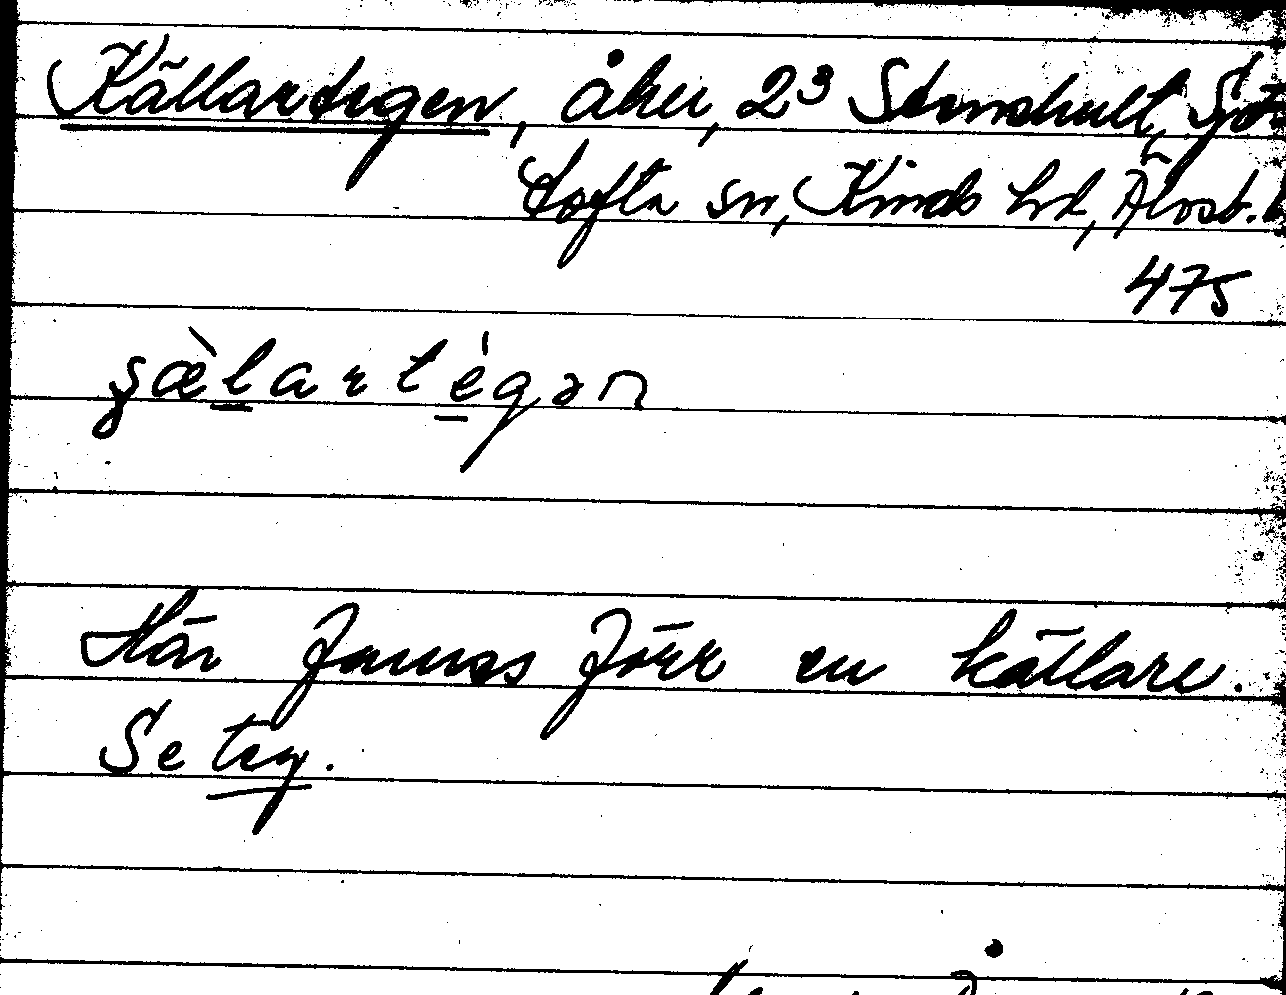 Källartegen, åker, 2³ Stenshult, Sjö-
tofta sn, Kinds hd, Älvsb. l
475
Här fannes förr en källare.
Se teg.